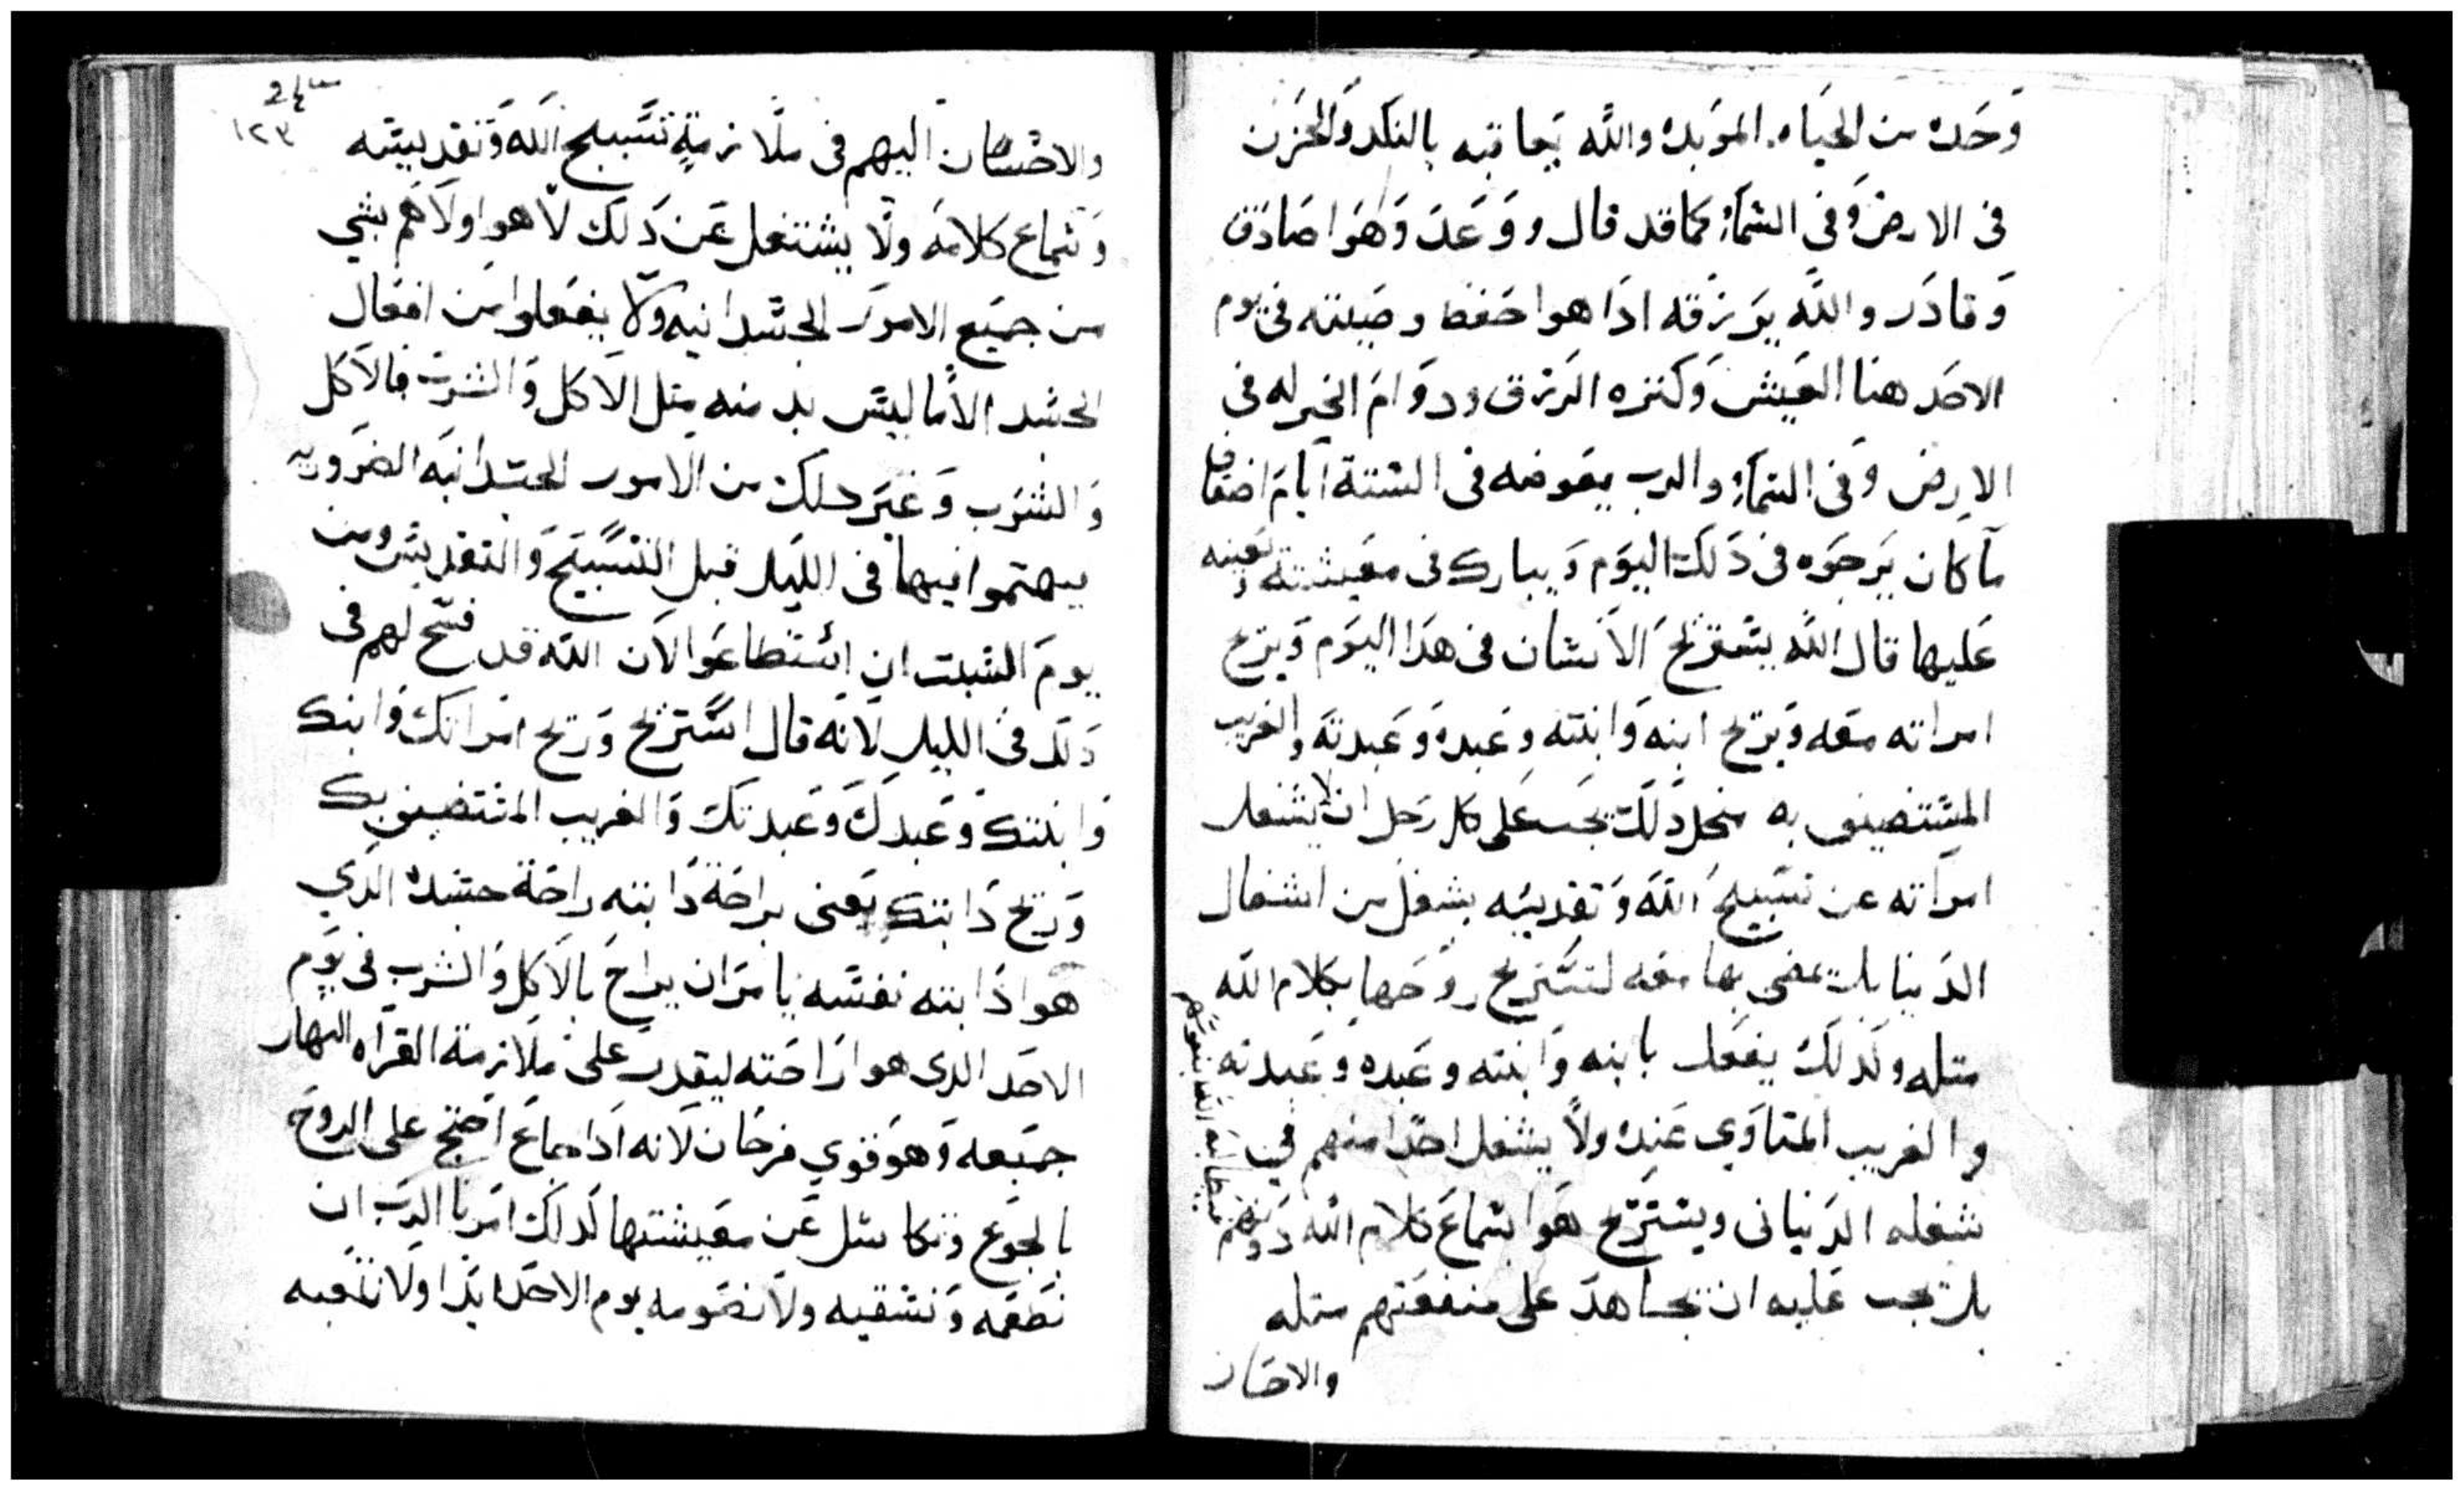 وَحَده من الحياه. الموبده والله يعاقبه بالنكد والحزن
فى الارض وَفى السَماء كما قد قال ووَعد وَهوَا صَادق
وَقادَر والله يرَزقه ادَا هوا حَفظ وصَيته فى يوم
الاحَد هنا العَيش وَكتره الرزق ودوَامَ الخير له فى
الارض وَفى السَماء والرب يعوضه فى الستة ايام اضعاف
مآ كان يَرجَوه فى دَلك اليوَم وَيبارك فى مَعيشته وَيَعينه
عَليها قال الله يستريح الانسَان فى هدَا اليوَم وَيريح
امراته معَه وَيريح ابنه وَابنته وعَبده وَعَبدته والغريب
المستضيف به فمن اجل دَلك يجب عَلى كل رَجل ان لا يشغل
امرآته عن تسَبيح الله وَتقديسه بشغل من اشغال
الدَنيا بل يمضى بها معَه لتستريح روَحها بكلام الله
متله وَكدلك يفعَل بابنه وَابنته وعَبده وعَبدته
والغريب المتاوَي عَنده ولا يشغل احدًا منهم فى
شغله الدَنيانى ويستريح هَوا بسَماع كلام الله دَونهم
بل يجب عَليه ان يجاهد على منفعَتهم متله
والاحسَان
والاحسَان اليهم فى ملازمة تسَبيح الله وَتقديسَه
وَسَماع كلامه ولا يشتغل عَن دَلك لا هوا ولاهم بشي
من جميَع الامور الجسَدانيه ولا يفعَلوا من افعَال
الجسَد الا ما ليسَ بد منه متل الاكل وَالشرب فالاكل
وَالشرَب وَغيَر دلك من الامور الجسَدانيَه الضرَوريه
يهتموا فيها فى الليَل قبل التسَبيح وَالتقديس ومن
يومَ السَبت ان اسَتطاعَوا لان الله قد فسَح لهم فى
دَلك فى الليل لانه قال استريح وَريح امرَاتك وَابنك
وَابنتك وَعَبدك وَعَبدتك وَالغريب المستضيف بك
وَريح دَابتك يعَنى براحَة دَابته راحَة جسَده الدَي
هوا دَابته نفسَه يامرَ ان يراح بالاكل وَالشرب فى يوَم
الاحَد الدى هوا رَاحَته ليقدر عَلى ملازمة القرَاه النهار
جميَعه وَهوَ قوي فرحَان لانه ادَا جاعَ احَتج على الروحَ
بالجوَع وَتكاسَل عَن معَيشتها لدَلك امرَنا الرب ان
نطعَمه وَنسَقيه ولا نصَومه يوم الاحَد ابدَا ولا نتعَبه
24
١٢٣